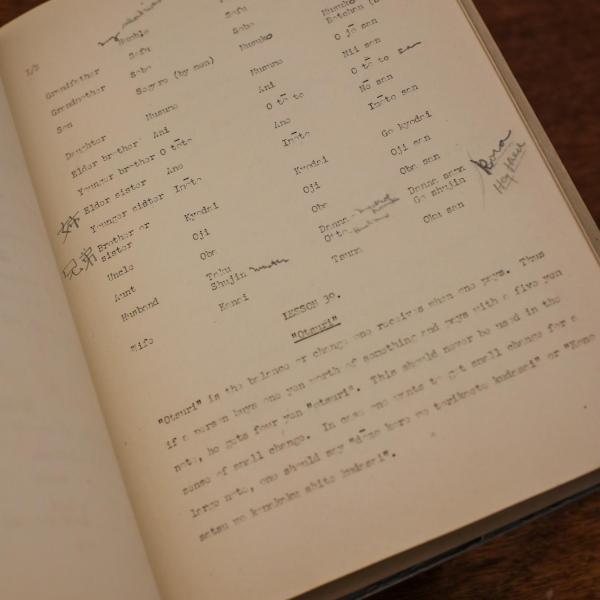 Humble
Sofu
Sofu
Grandfather
Sobo
Sobo
Musuko
Grandmother
Musuko
O jō san
Son
Musume
Musume
Nii san
Daughter
Ani
Ani
O tō to san
Elder brother
O tōto
O tō to
Younger brother
Ane
Ane
Imōto san
姉 Elder sister
Imōto
Imōto
Go kyodai
Younger sister
Kyodai
Kyodai
Oji san
兄弟 Brother or sister
Oji
Oji
Oba san
Uncle
Oba
Oba
Danna sama
Go shujin
Aunt
Shujin
Danna
Oku san
Husband
Kanai
Tsuma
Wife
LESSON 39.
"Otsuri"
"Otsuri" is the balance or change one receives when one pays. Thus
if a person buys one yen worth of something and pays with a five yen
note, he gets four yen "otsuri". This should never be used in the
sense of small change. In case one wants to get small change for a
large note, one should say "dōzo kore wo torikaete kudasai" or "Kono
satsu wo komakaku shite kudasai".